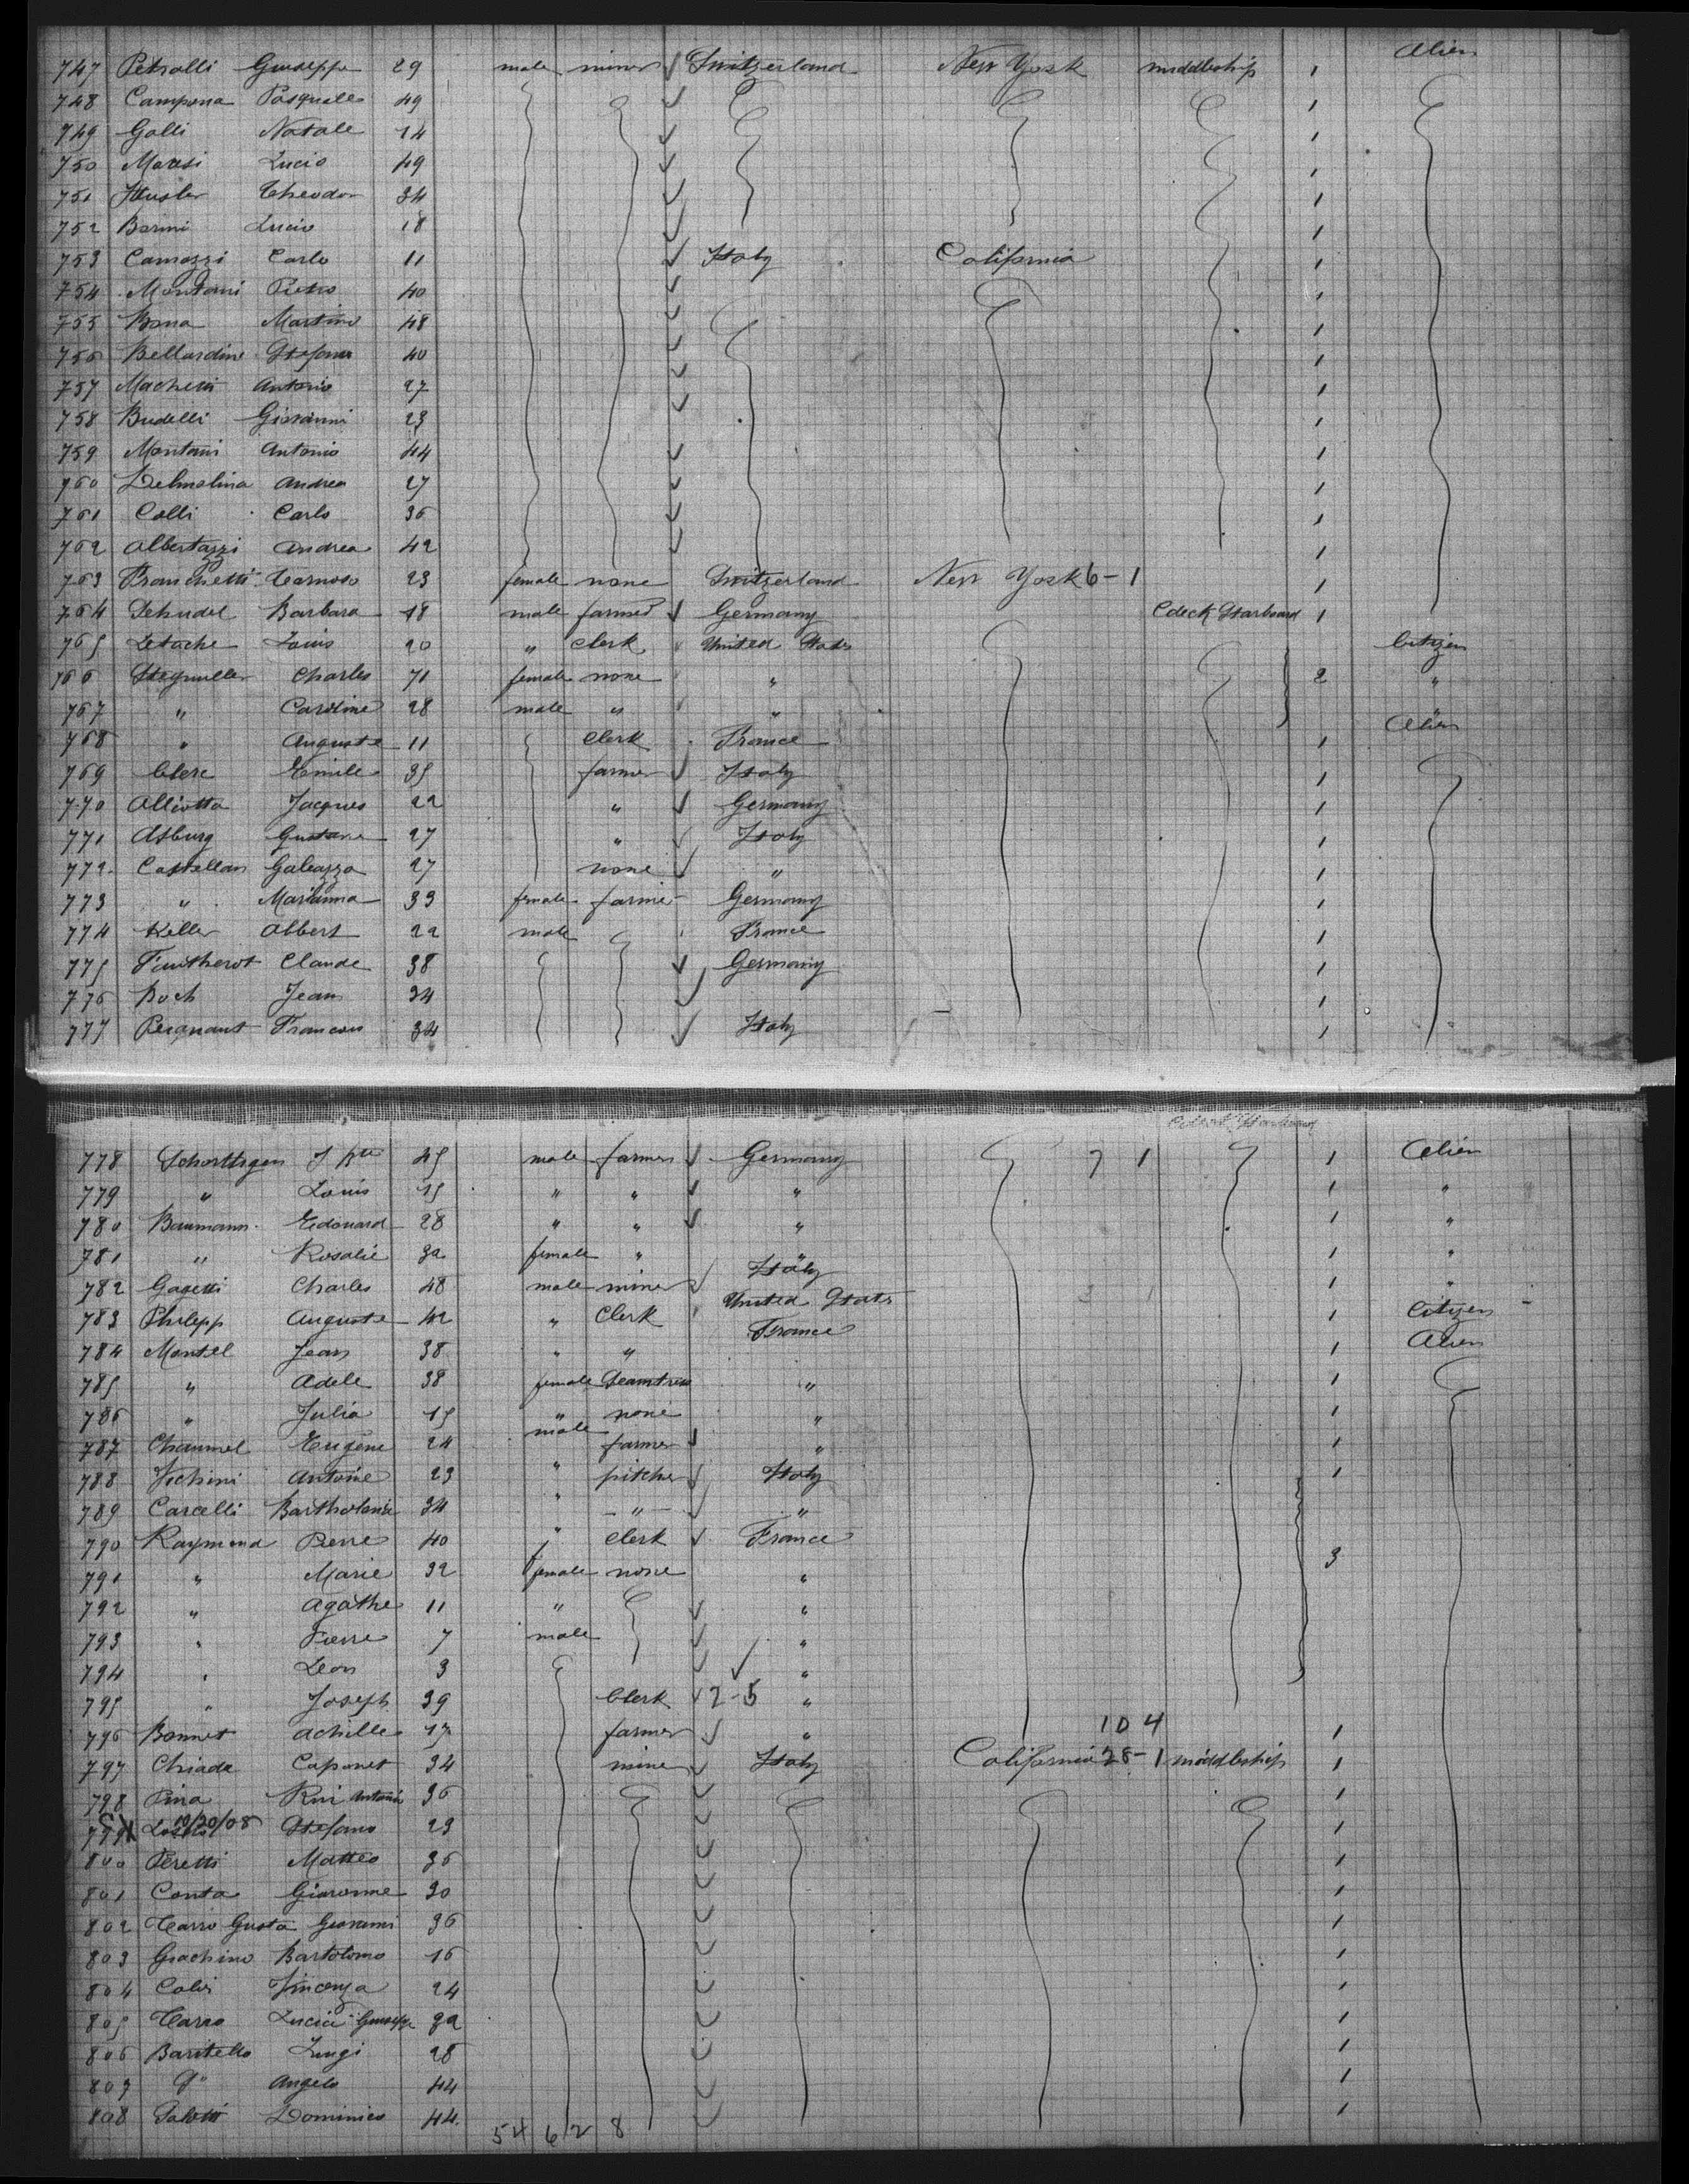 747 Petralli Giuseppe 29 male miner Switzerland New York middleship 1 Alien
748 Campona Pasquale 49 1
749 Galli Natale 14 1
750 Marsi Lucio 49 1
751 Husler Theodor 34 1
752 Barini Lucio 18 1
753 Camozzi Carlo 11 Italy California 1
754 Montani Pietro 40 1
755 Bona Martino 48 1
756 Bellardini Stefano 40 1
757 Machetti Antonio 27 1
758 Budelli Giovanni 23 1
759 Montani Antonio 44 1
760 Delmolina Andrea 27 1
761 Colli Carlo 36 1
762 Albertazzi Andrea 42 1
763 Franchetti 23 female none Switzerland New York 6-1 1
764 Schudel Barbara 18 male farmer Germany C deck Starboard 1
765 Letache Louis 20 " clerk United States Citizen
766 Stegmuller Charles 71 female none " 2 "
767 " Caroline 28 male " "
768 " Auguste 11 clerk France 1 Alien
769 Clerc Emile 35 farmer Italy 1
770 Alliotta Jacques 22 " Germany 1
771 Asburg Gustave 27 " Italy 1
772 Castellan Galeazzo 27 none " 1
773 " Marianna 33 female farmer Germany 1
774 Keller Albert 22 male France 1
775 Claude 38 Germany 1
776 Boch Jean 34 1
777 Francois 34 Italy 1
778 Schorttgen J Bte 45 male farmer Germany 7 1 1 Alien
779 " Louis 15 " " " 1 "
780 Baumann Edouard 28 " " " 1 "
781 " Rosalie 32 female " " 1 "
782 Gagetti Charles 48 male miner Italy 1 "
783 Philepp Auguste 42 " Clerk United States 1 Citizen
784 Montel Jean 38 " " France 1 Alien
785 " Adele 38 female Seamtress " 1
786 " Julia 15 " none " 1
787 Chaumel Eugene 24 male farmer " 1
788 Vichini Antoine 23 " pitcher Italy 1
789 Carcelli 34 " " "
790 Raymond Pierre 40 " clerk France
791 " Marie 32 female none " 3
792 " Agathe 11 " "
793 " Pierre 7 male "
794 " Leon 3 "
795 " Joseph 39 Clerk 2-5 "
796 Bonnet Achille 17 farmer " 104 1
797 Chiada Caponet 34 mine Italy California 28-1 middleship 1
798 Pina Rini Antonio 36 1
799 10/20/08 Stefano 23 1
800 Peretti Matteo 36 1
801 Conta 30 1
802 Carro Gusta Giovanni 36 1
803 Giachino Bartolomo 16 1
804 Calvi Vincenza 24 1
805 Carro Lucia Giuseppe 32 1
806 Baritello Luigi 28 1
807 d° Angelo 44 1
808 Dominico 44 1
54 6 2 8